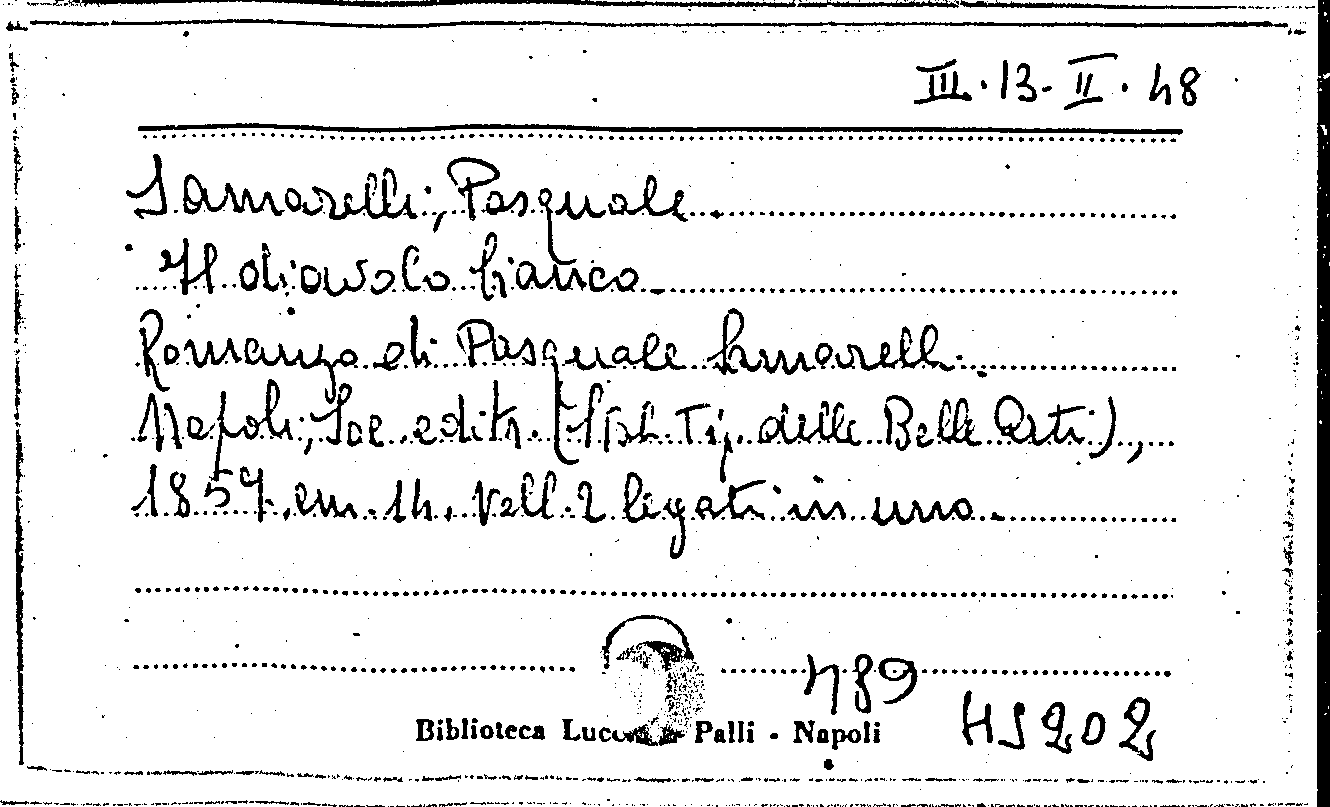 III.13-II.48
Samarelli, Pasquale.
Il diavolo bianco.
Romanzo di Pasquale Samarelli.
Napoli, Soc. editr. (Stab. Tip. delle Belle Arti),
1857. cm. 14. Voll. 2 legati in uno.
489
Biblioteca Palli - Napoli